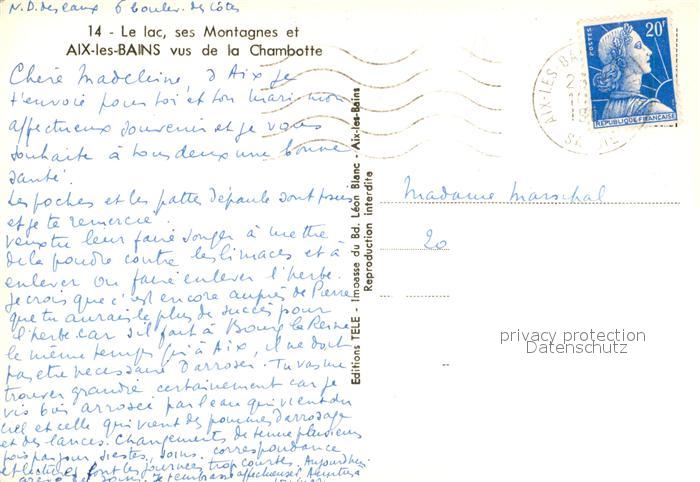 N.D. des eaux 6 boulev. des Côtes
14 - Le lac, ses Montagnes et
AIX-les-BAINS vus de la Chambotte
Chère Madeleine, d'Aix je
t'envoie pour toi et ton mari mon
affectueux souvenir et je vous
souhaite à tous deux une bonne
santé.
Les poches et les pattes d'épaule sont posées
et je te remercie.
Veux tu leur faire songer à mettre
de la poudre contre les limaces et à
enlever ou faire enlever l'herbe.
Je crois que c'est encore auprès de Pierre
que tu auras le plus de succès pour
l'herbe car s'il fait à Bourg la Reine
le même temps qu'à Aix, il ne doit
pas être nécessaire d'arroser. Tu vas me
trouver grandie certainement car je
vis bien arrosée par l'eau qui vient du
ciel et celle qui vient des pommes d'arrosage
et des lances. Changements de tenue plusieurs
fois par jour, siestes, soins, correspondance
et lectures font les journées trop courtes. Aujourd'hui
Je t'embrasse affectueusement
Editions TELE - Impasse du Bd. Léon Blanc - Aix-les-Bains
Reproduction interdite
AIX-LES-BA
SAVOIE
POSTES
20F
REPUBLIQUE FRANÇAISE
Madame Marschal
20
privacy protection
Datenschutz